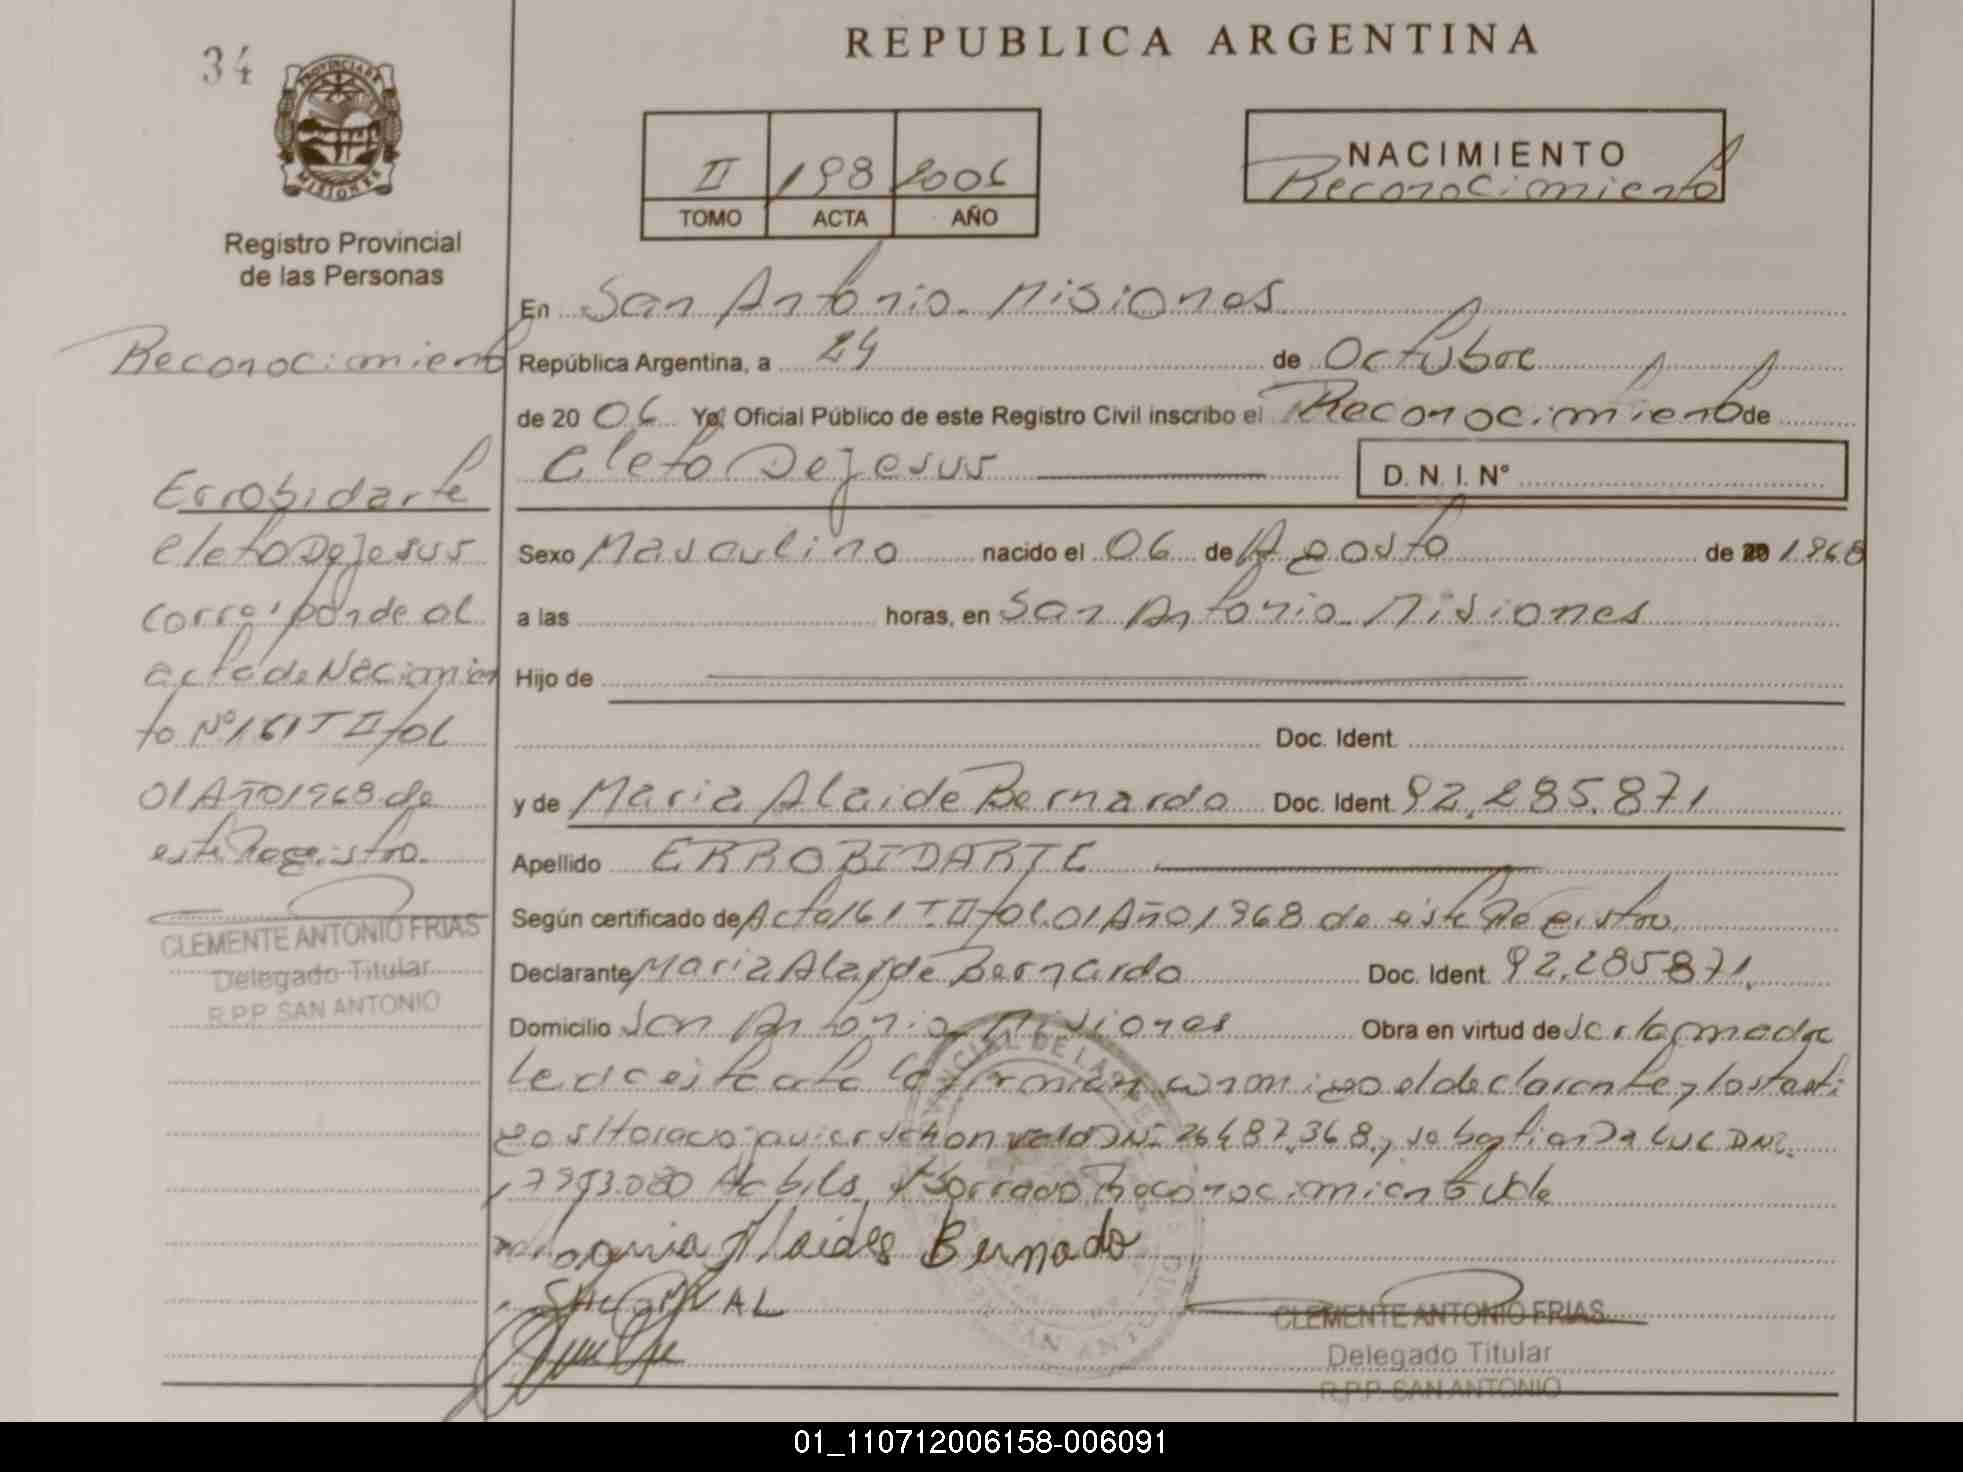 34
REPUBLICA ARGENTINA
PROVINCIA DE MISIONES
Registro Provincial
de las Personas
II 198 2006
TOMO ACTA AÑO
NACIMIENTO
Reconocimiento
Reconocimiento
Errobidarte
Cleto De Jesus
corresponde al
acta de Nacimien
to Nº 161 T II fol
01 Año 1968 de
este Registro.
CLEMENTE ANTONIO FRIAS
Delegado Titular
R.P.P. SAN ANTONIO
En San Antonio. Misiones
República Argentina, a 24 de Octubre
de 20 06 Yo, Oficial Público de este Registro Civil inscribo el Reconocimiento de
Cleto De Jesus D. N. I. Nº
Sexo Masculino nacido el 06 de Agosto de 20 1968
a las horas, en San Antonio. Misiones
Hijo de
Doc. Ident.
y de Maria Alaide Bernardo Doc. Ident. 92.285.871
Apellido ERROBIDARTE
Según certificado de Acta 161 T II fol. 01 Año 1968 de este Registro.
Declarante Maria Alaide Bernardo Doc. Ident. 92.285871.
Domicilio San Antonio Misiones Obra en virtud de ser la madre
leida esta acta la firman conmigo el declarante y los testi
gos DNI 26487.368. y Sebastian Da Luz DNI.
Borrado Reconocimiento Vale
Alaides Bernado
CLEMENTE ANTONIO FRIAS
Delegado Titular
R.P.P. SAN ANTONIO
01_110712006158-006091